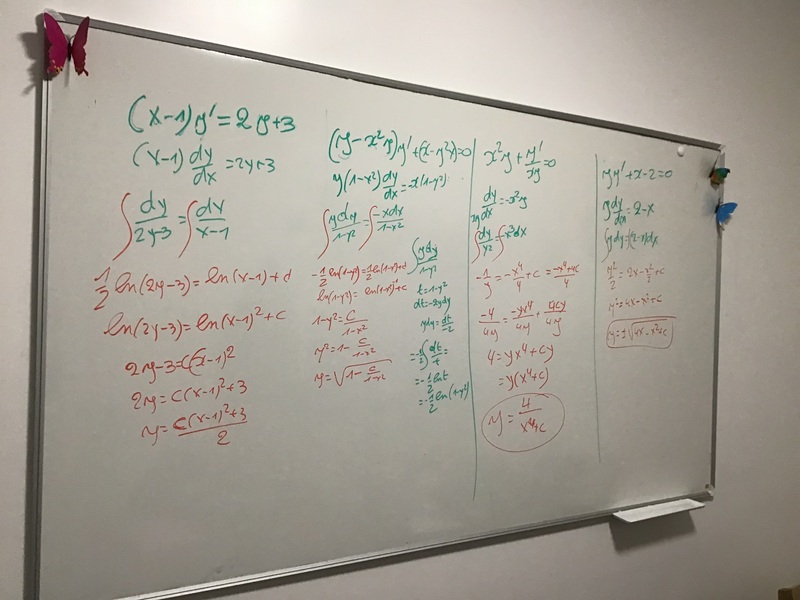 (x-1)y' = 2y+3
(x-1) dy/dx = 2y+3
∫ dy/2y-3 = ∫ dx/x-1
1/2 ln(2y-3) = ln(x-1)+d
ln(2y-3) = ln(x-1)²+c
2y-3=C(x-1)²
2y=c(x-1)²+3
y= c(x-1)²+3/2
(y-x²y)y'+(x-y²x)=0
y(1-x²) dy/dx = -x(1-y²)
∫ ydy/1-y² = ∫ -xdx/1-x²
-1/2 ln(1-y²)=1/2 ln(1-x²)+d
1-y²= C/1-x²
y²=1- C/1-x²
y=√1- C/1-x²
∫ ydy/1-y²
t=1-y²
dt=-2ydy
ydy= dt/-2
=-1/2 ∫ dt/t =
=-1/2 ln t
=-1/2 ln(1-y²)
x²y+ y'/xy =0
dy/xy dx = -x²y
∫ dy/y² = ∫ -x³dx
-1/y = -x⁴/4 +c = -x⁴+4c/4
-4/4y = -yx⁴/4y + 4cy/4y
4=yx⁴+cy
=y(x⁴+c)
y= 4/x⁴+c
yy'+x-2=0
y dy/dx = 2-x
∫ydy=∫(2-x)dx
y²/2 = 2x- x²/2 +c
y²=4x-x²+c
y=±√4x-x²+c